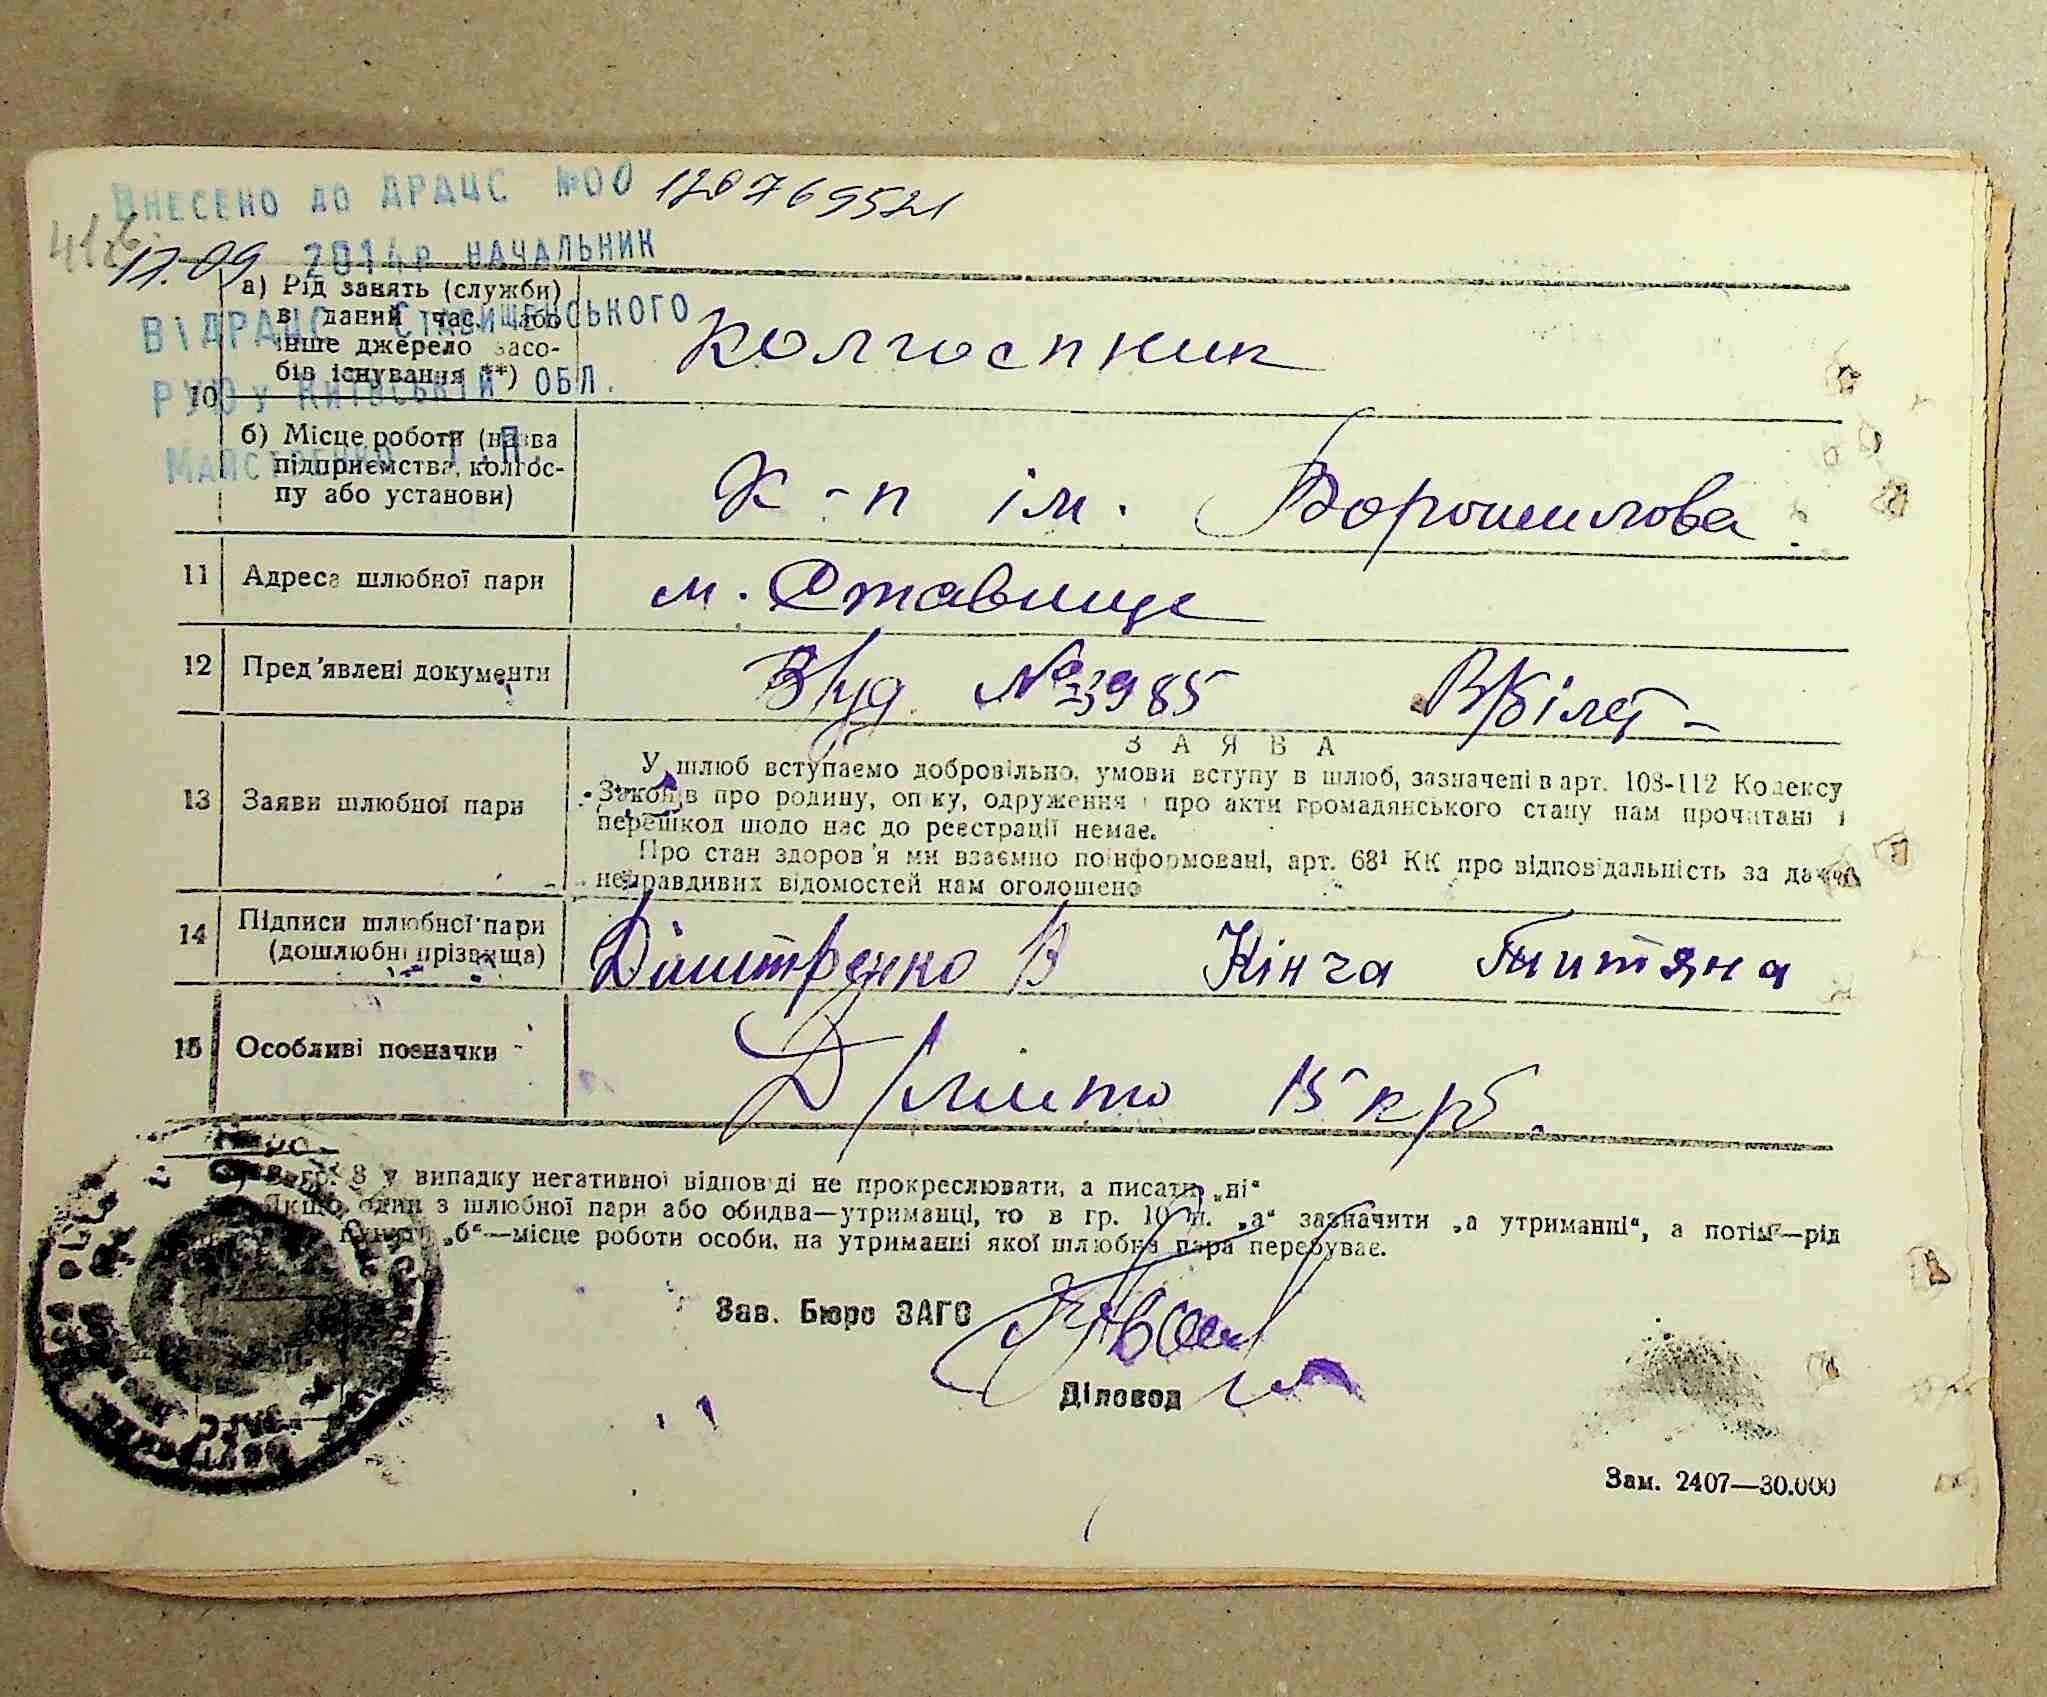 Внесено до ДРАЦС №00 120769521
17.09 2014р начальник
ВІДРАЦС Ставищенського
РУЮ у Київській обл.
Майстренко Т.П.
10
а) Рід занять (служби)
в даний час, або
інше джерело засо-
бів існування **)
Колгоспник
б) Місце роботи (назва
підприємства, колгос-
пу або установи)
К-п ім. Ворошилова
11 Адреса шлюбної пари м. Ставище
12 Пред'явлені документи В/уд. № 3985 В/білет
13 Заяви шлюбної пари
ЗАЯВА
У шлюб вступаємо добровільно, умови вступу в шлюб, зазначені в арт. 108-112 Кодексу
Законів про родину, опіку, одруження і про акти громадянського стану нам прочитані і
перешкод щодо нас до реєстрації немає.
Про стан здоров'я ми взаємно поінформовані, арт. 68¹ КК про відповідальність за дачу
неправдивих відомостей нам оголошено
14 Підписи шлюбної пари
(дошлюбні прізвища)
Дімитренко В Кінча Титяна
15 Особливі позначки 15 крб.
В гр. 8 у випадку негативної відповіді не прокреслювати, а писати „ні“
Якщо один з шлюбної пари або обидва—утриманці, то в гр. 10 п. „а“ зазначити „а утриманці“, а потім—рід
„б“—місце роботи особи, на утриманні якої шлюбна пара перебуває.
Зав. Бюро ЗАГС
Діловод
Зам. 2407—30.000